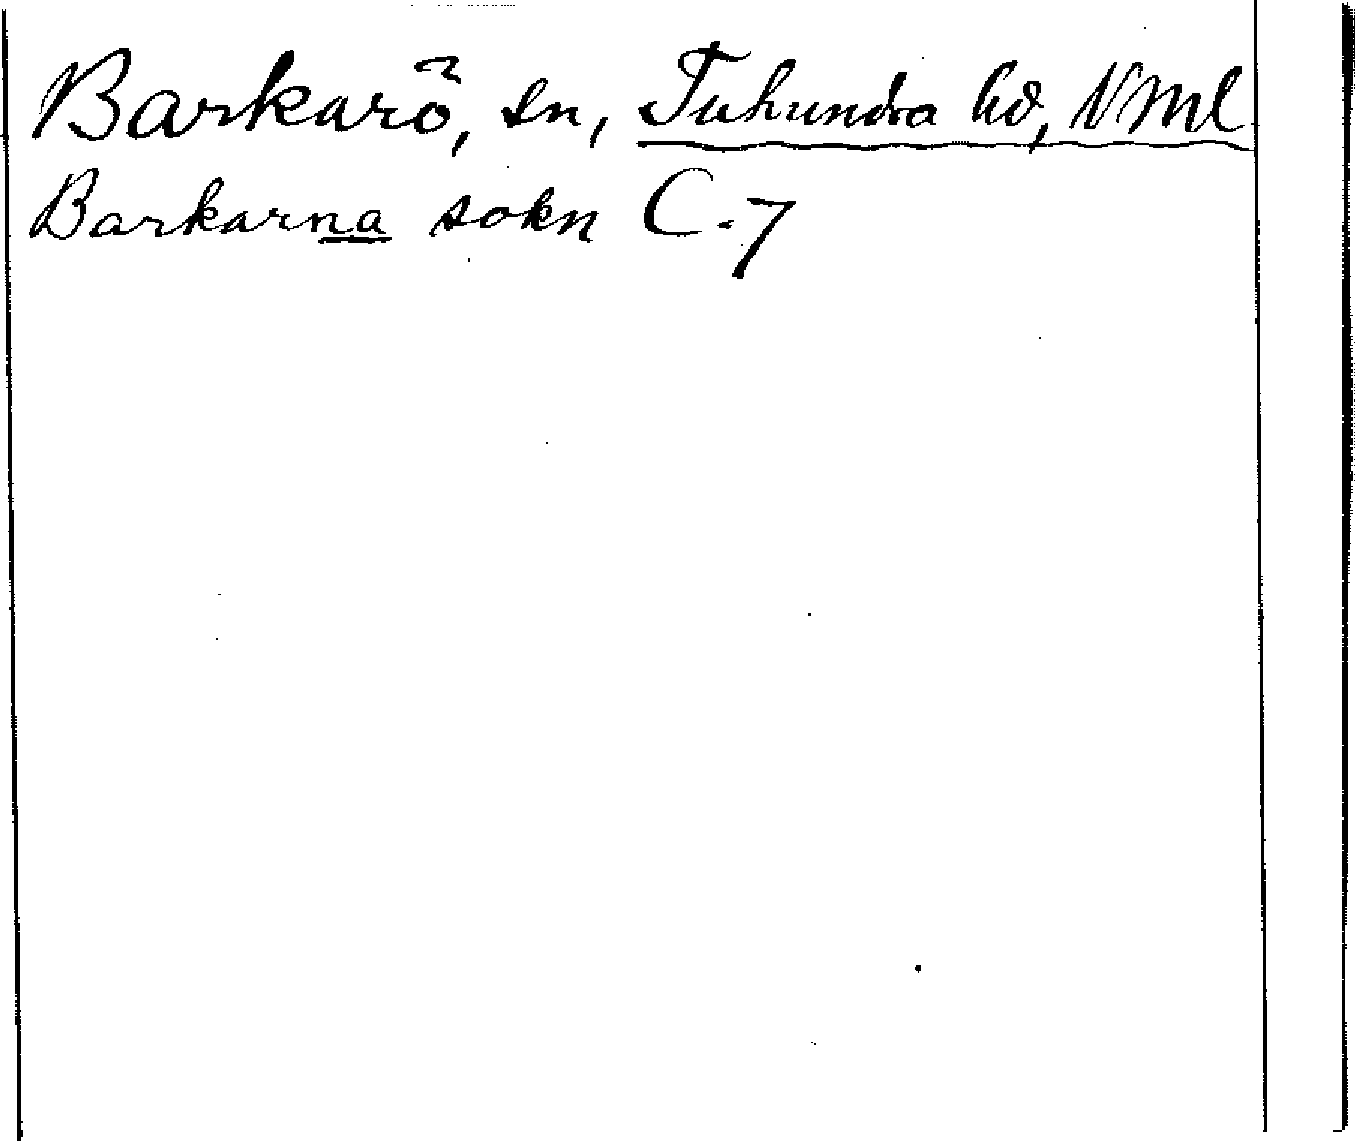 Barkarö, sn, Tuhundra hd, Vml
Barkarna sokn C.7